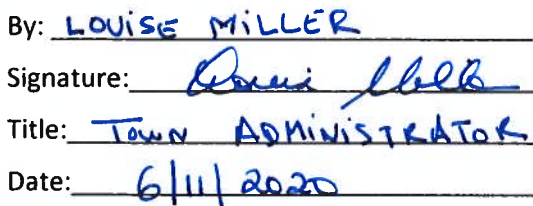 By: LOUISE MILLER
Signature: Louise Miller
Title: TOWN ADMINISTRATOR
Date: 6/11/2020